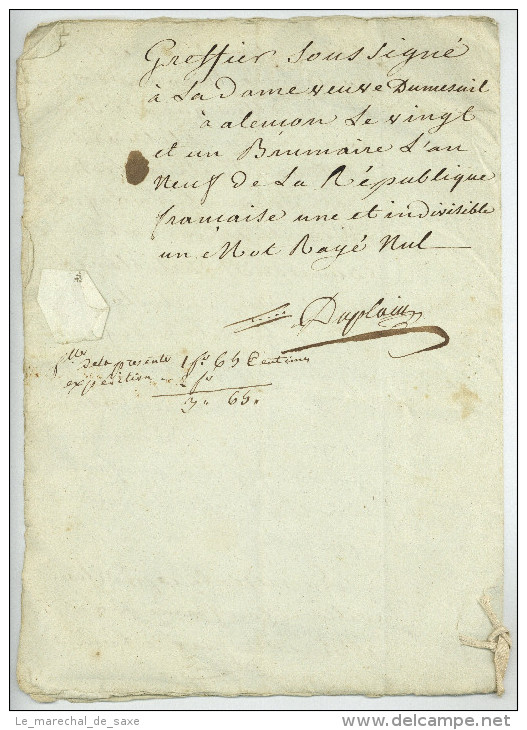 Greffier soussigné
à La dame veuve Dumesnil
à alençon Le vingt
et un Brumaire L'an
neuf de La République
française une et indivisible
un Mot Rayé Nul
Duplain
de la presente 1 fr 65 Centimes
expedition 2 fr
3" 65"
Le_marechal_de_saxe
delcampe.net